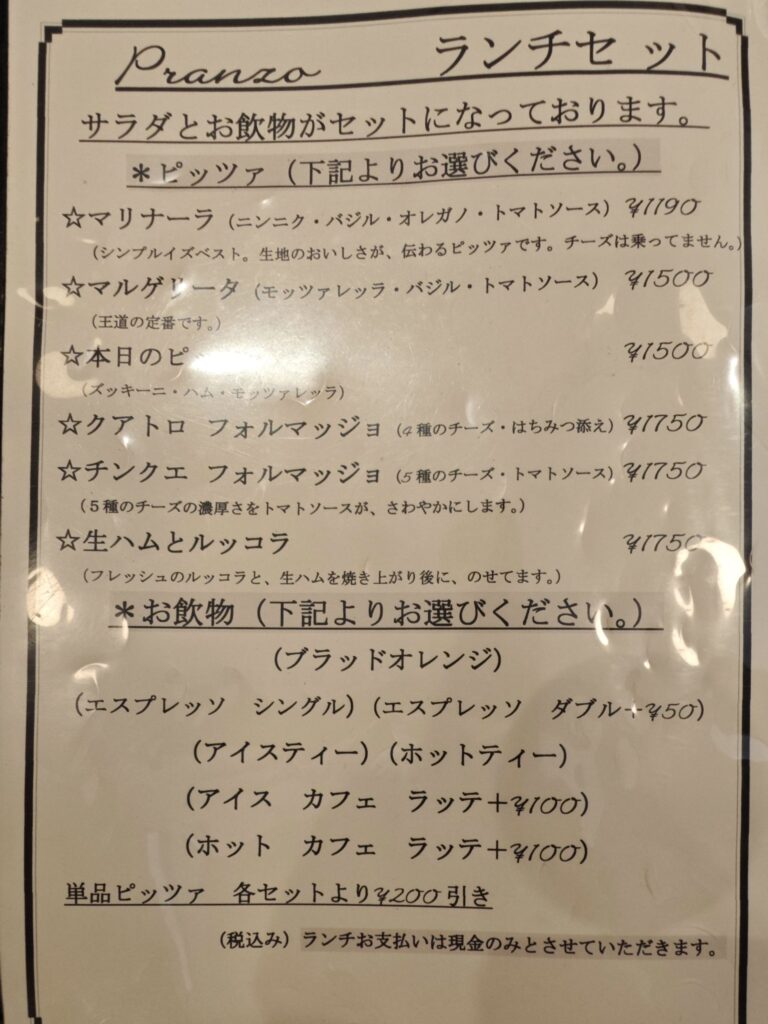 Pranzo ランチセット
サラダとお飲物がセットになっております。
＊ピッツァ（下記よりお選びください。）
☆マリナーラ（ニンニク・バジル・オレガノ・トマトソース）¥1190
（シンプルイズベスト。生地のおいしさが、伝わるピッツァです。チーズは乗ってません。）
☆マルゲリータ（モッツァレッラ・バジル・トマトソース）¥1500
（王道の定番です。）
☆本日のピ ¥1500
（ズッキーニ・ハム・モッツァレッラ）
☆クアトロ フォルマッジョ（4種のチーズ・はちみつ添え）¥1750
☆チンクエ フォルマッジョ（5種のチーズ・トマトソース）¥1750
（５種のチーズの濃厚さをトマトソースが、さわやかにします。）
☆生ハムとルッコラ ¥1750
（フレッシュのルッコラと、生ハムを焼き上がり後に、のせてます。）
＊お飲物（下記よりお選びください。）
（ブラッドオレンジ）
（エスプレッソ シングル）（エスプレッソ ダブル＋¥50）
（アイスティー）（ホットティー）
（アイス カフェ ラッテ＋¥100）
（ホット カフェ ラッテ＋¥100）
単品ピッツァ 各セットより¥200引き
（税込み）ランチお支払いは現金のみとさせていただきます。